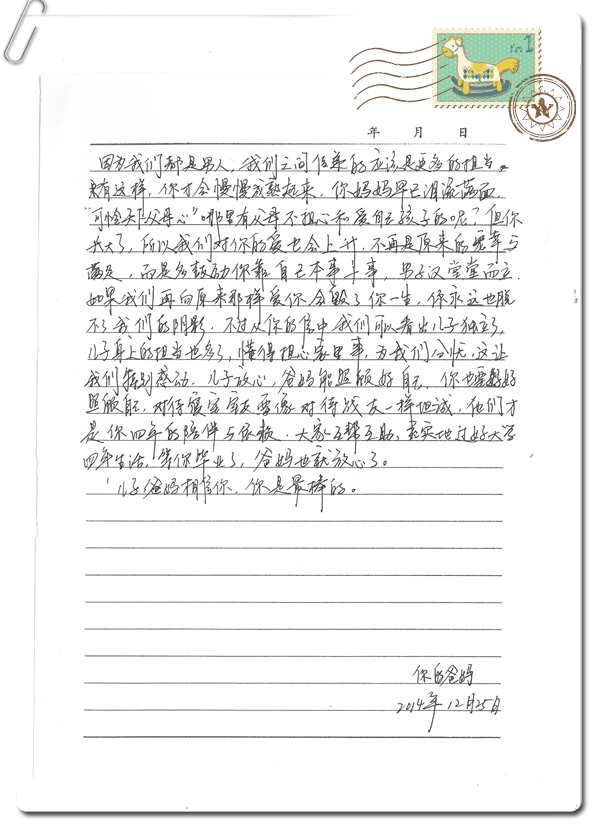 1
年 月 日
因为我们都是男人、我们之间传承的应该是更多的担当。
有这样，你才会慢慢成熟起来，你妈妈早已泪流满面
“可怜天下父母心”哪里有父母不担心和爱自己孩子的呢？但你
长大了，所以我们对你的爱也会上升，不再是原来的宠幸与
满足，而是多鼓励你靠自己本事干事，男子汉堂堂而立．
如果我们再向原来那样爱你会毁了你一生，你永远也脱
不了我们的阴影．不过从你的信中我们可以看出儿子独立了，
儿子身上的担当也多了，懂得担心家里事，为我们分忧，这让
我们特别感动．儿子放心，爸妈能照顾好自己，你也要好好
照顾自己，对待寝室室友要像对待战友一样坦诚，他们才
是你四年的陪伴与依赖．大家互帮互助，充实地过好大学
四年生活，等你毕业了，爸妈也就放心了。
儿子爸妈相信你．你是最棒的。
你的爸妈
2014年12月25日